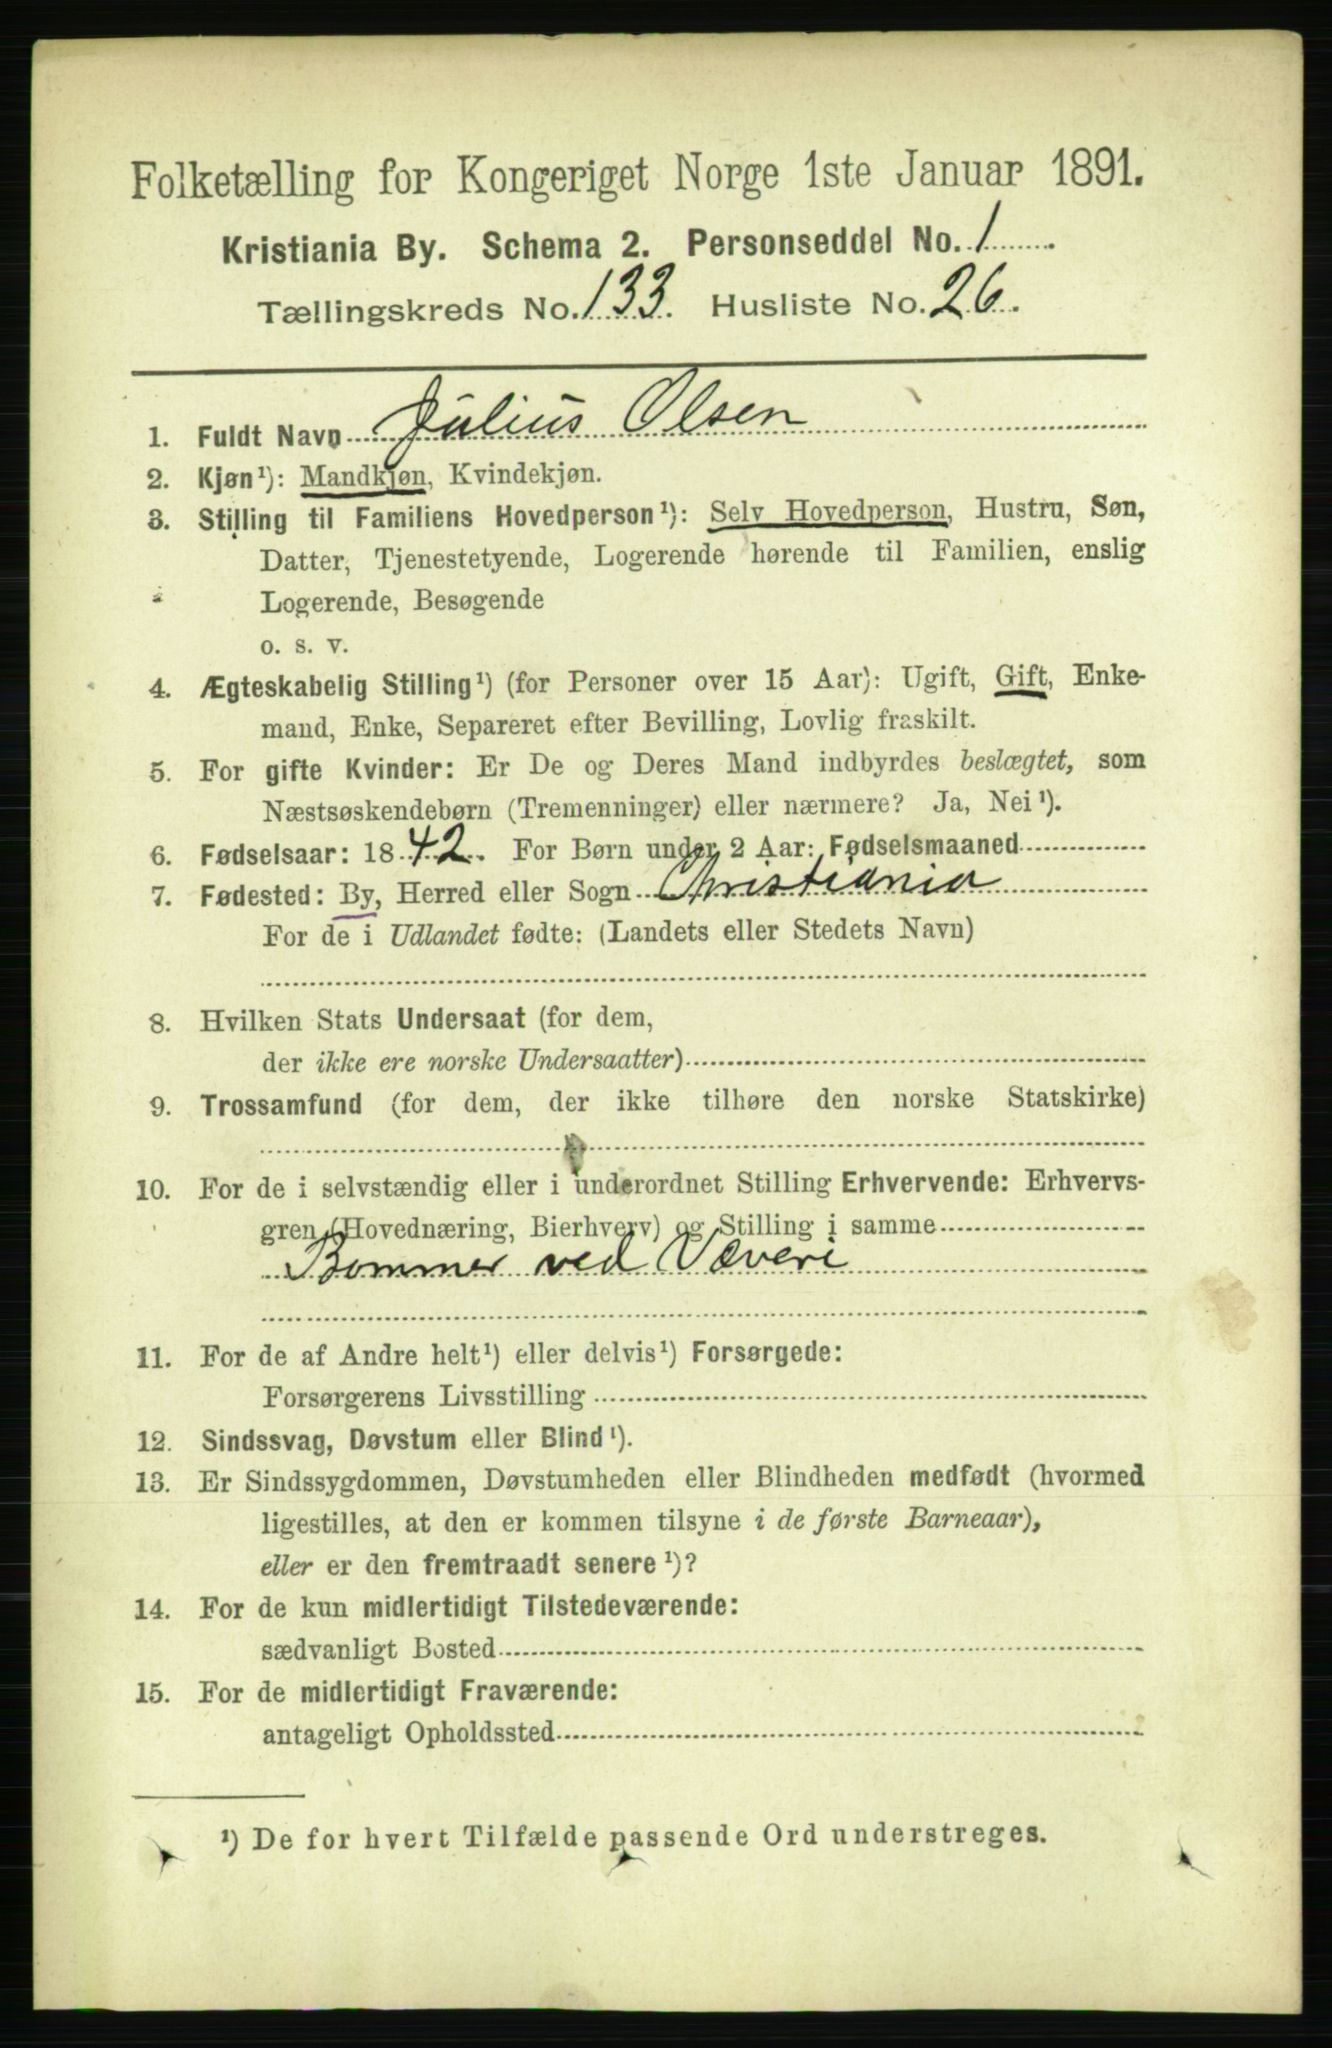 Folketælling for Kongeriget Norge 1ste Januar 1891.
Kristiania By. Schema 2. Personseddel No. 1
Tællingskreds No. 133. Husliste No. 26.
1. Fuldt Navn Julius Olsen
2. Kjøn¹): Mandkjøn, Kvindekjøn.
3. Stilling til Familiens Hovedperson¹): Selv Hovedperson, Hustru, Søn,
Datter, Tjenestetyende, Logerende hørende til Familien, enslig
Logerende, Besøgende
o. s. v.
4. Ægteskabelig Stilling¹) (for Personer over 15 Aar): Ugift, Gift, Enke-
mand, Enke, Separeret efter Bevilling, Lovlig fraskilt.
5. For gifte Kvinder: Er De og Deres Mand indbyrdes beslægtet, som
Næstsøskendebørn (Tremenninger) eller nærmere? Ja, Nei¹).
6. Fødselsaar: 1842. For Børn under 2 Aar: Fødselsmaaned
7. Fødested: By, Herred eller Sogn Christiania
For de i Udlandet fødte: (Landets eller Stedets Navn)
8. Hvilken Stats Undersaat (for dem,
der ikke ere norske Undersaatter)
9. Trossamfund (for dem, der ikke tilhøre den norske Statskirke)
10. For de i selvstændig eller i underordnet Stilling Erhvervende: Erhvervs-
gren (Hovednæring, Bierhverv) og Stilling i samme
Bommer ved Væveri
11. For de af Andre helt¹) eller delvis¹) Forsørgede:
Forsørgerens Livsstilling
12. Sindssvag, Døvstum eller Blind¹).
13. Er Sindssygdommen, Døvstumheden eller Blindheden medfødt (hvormed
ligestilles, at den er kommen tilsyne i de første Barneaar),
eller er den fremtraadt senere¹)?
14. For de kun midlertidigt Tilstedeværende:
sædvanligt Bosted
15. For de midlertidigt Fraværende:
antageligt Opholdssted
¹) De for hvert Tilfælde passende Ord understreges.